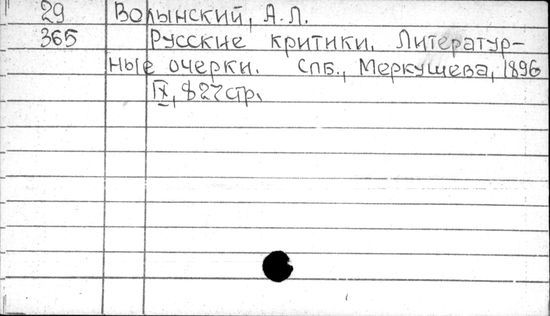 29 Волынский, А.Л.
365 Русские критики. Литератур-
ные очерки. СПБ., Меркушева, 1896
IX, 827 стр.